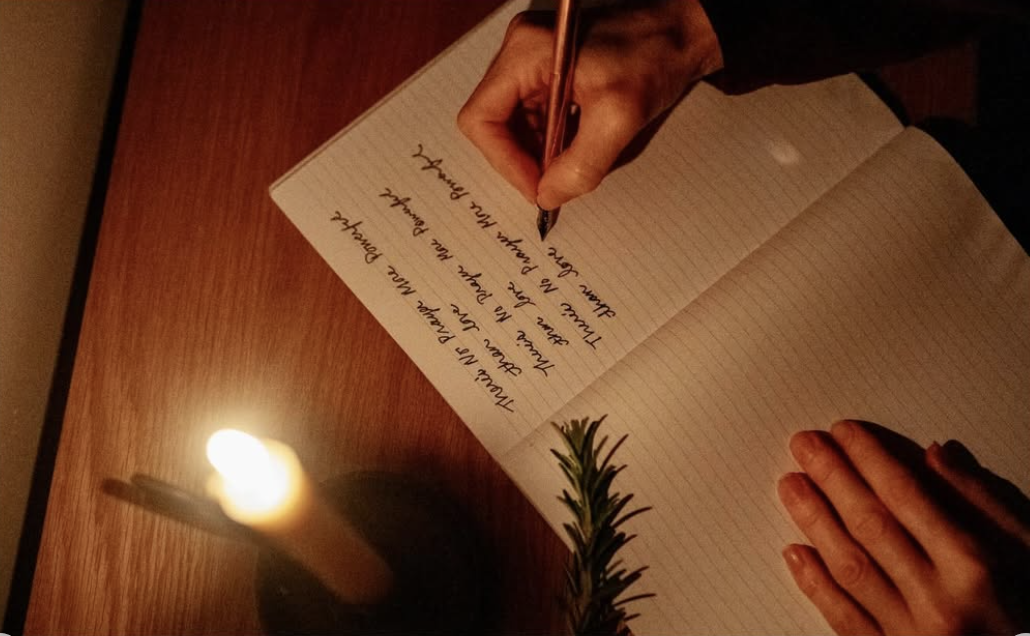 There's No Prayer More Powerful
than Love
There's No Prayer More Powerful
than Love
There's No Prayer More Powerful
than Love